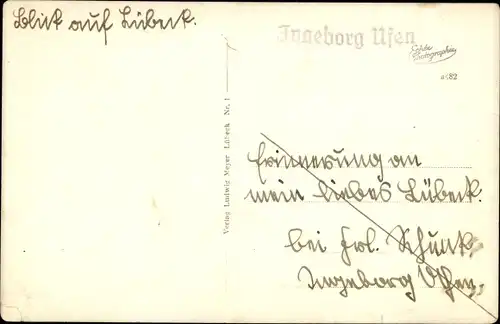 Blick auf Lübeck.
Ingeborg Ufen
Echte Photographie
a 682
Verlag Ludwig Meyer Lübeck Nr. 1
Erinnerung an
mein liebes Lübeck.
bei Frl. Schunk,
Ingeborg Ufen,